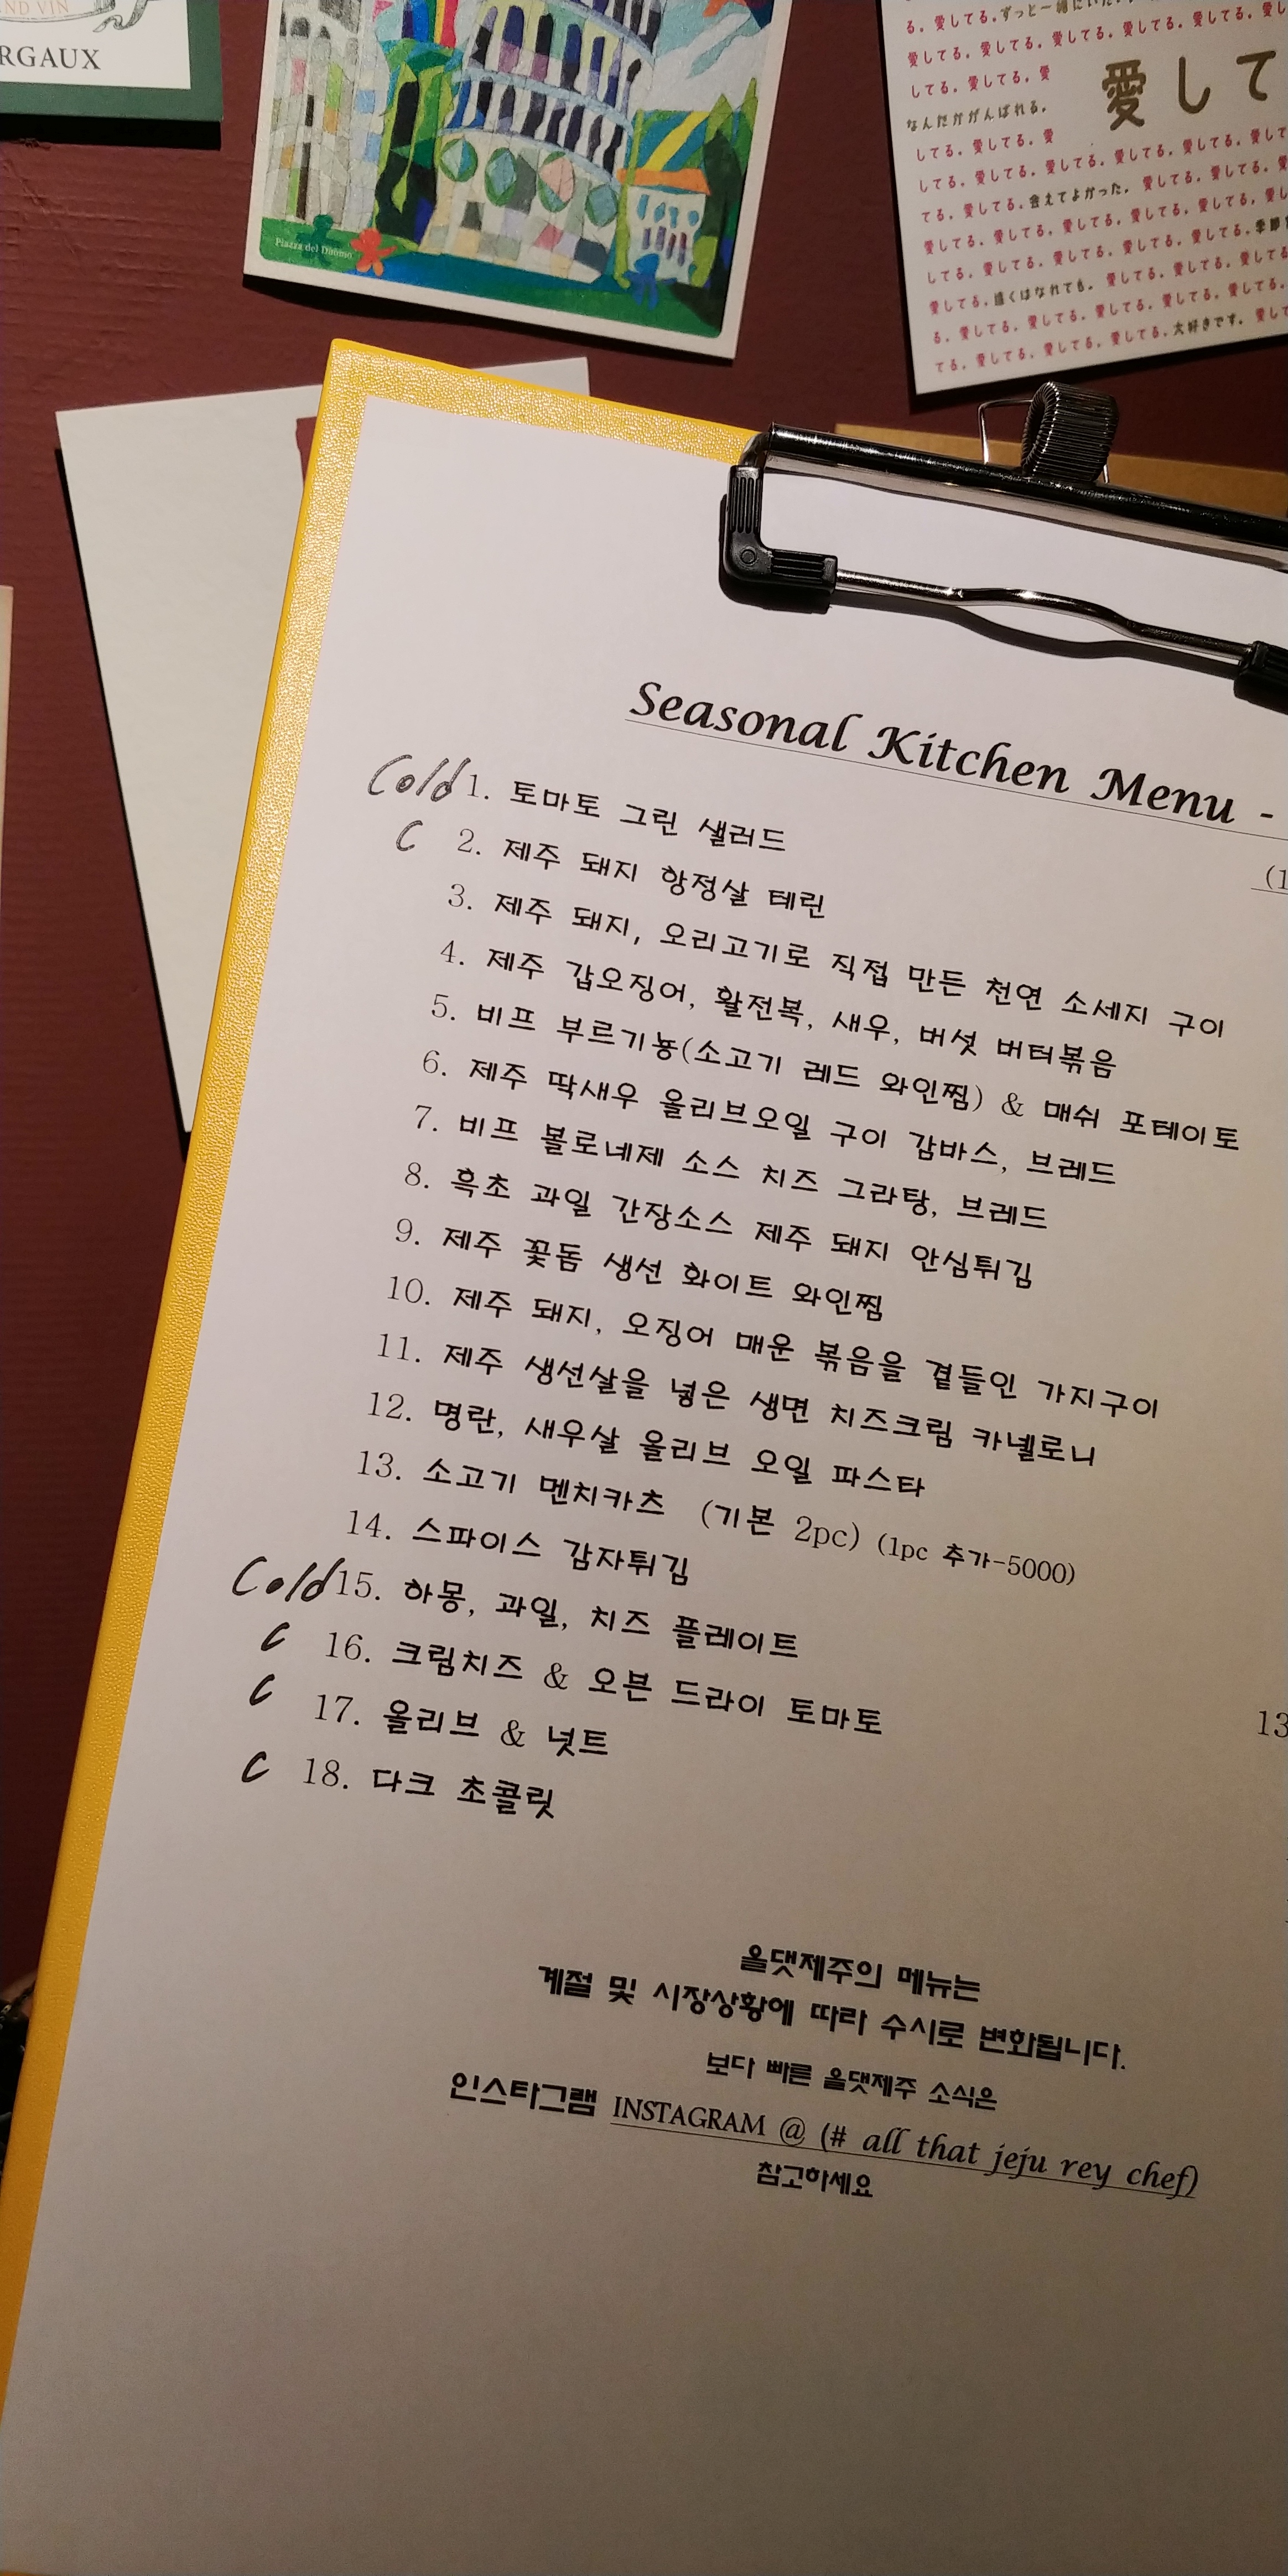 AND VIN
RGAUX
Piazza del Duomo
る。愛してる。ずっと一緒に
愛してる。愛してる。愛してる。愛してる。愛してる。愛し
してる。愛してる。愛
なんだかがんばれる。
してる。愛してる。愛
愛して
してる。愛してる。愛してる。愛してる。愛してる。愛して
てる。愛してる。会えてよかった。愛してる。愛してる。
愛してる。愛してる。愛してる。愛してる。愛してる。愛
してる。愛してる。愛してる。愛してる。愛してる。季節
愛してる。遠くはなれても。愛してる。愛してる。愛してる
る。愛してる。愛してる。愛してる。愛してる。愛してる。
てる。愛してる。愛してる。愛してる。大好きです。愛して
Seasonal Kitchen Menu -
(1
Cold 1. 토마토 그린 샐러드
C 2. 제주 돼지 항정살 테린
3. 제주 돼지, 오리고기로 직접 만든 천연 소세지 구이
4. 제주 갑오징어, 활전복, 새우, 버섯 버터볶음
5. 비프 부르기뇽(소고기 레드 와인찜) & 매쉬 포테이토
6. 제주 딱새우 올리브오일 구이 감바스, 브레드
7. 비프 볼로네제 소스 치즈 그라탕, 브레드
8. 흑초 과일 간장소스 제주 돼지 안심튀김
9. 제주 꽃돔 생선 화이트 와인찜
10. 제주 돼지, 오징어 매운 볶음을 곁들인 가지구이
11. 제주 생선살을 넣은 생면 치즈크림 카넬로니
12. 명란, 새우살 올리브 오일 파스타
13. 소고기 멘치카츠 (기본 2pc) (1pc 추가-5000)
14. 스파이스 감자튀김
Cold 15. 하몽, 과일, 치즈 플레이트
C 16. 크림치즈 & 오븐 드라이 토마토
13
C 17. 올리브 & 넛트
C 18. 다크 초콜릿
올댓제주의 메뉴는
계절 및 시장상황에 따라 수시로 변화됩니다.
보다 빠른 올댓제주 소식은
인스타그램 INSTAGRAM @ (# all that jeju rey chef)
참고하세요